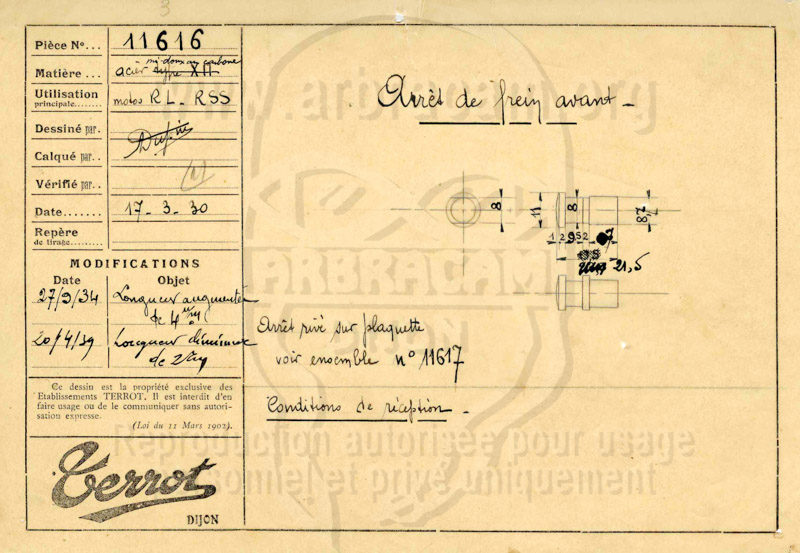 3
Pièce N°... 11616
mi-doux au carbone
Matière ... acier type XII
Utilisation
principale......... motos RL - RSS
Dessiné par.
Calqué par..
Vérifié par..
Date....... 17-3-30
Repère
de tirage.........
MODIFICATIONS
Date Objet
27/9/34 Longueur augmentée
de 4 m/m
20/4/39 Longueur diminuée
de 2 m/m
Ce dessin est la propriété exclusive des
Etablissements TERROT. Il est interdit d'en
faire usage ou de le communiquer sans autori-
sation expresse.
(Loi du 11 Mars 1902).
Terrot
DIJON
Arrêt de frein avant -
8
11
8
8,7
1 2 9,5 2 7
21,5
Arrêt rivé sur plaquette
voir ensemble n° 11617
Conditions de réception -
www.arbracam.org
ARBRACAM
DIJON
Reproduction autorisée pour usage
personnel et privé uniquement